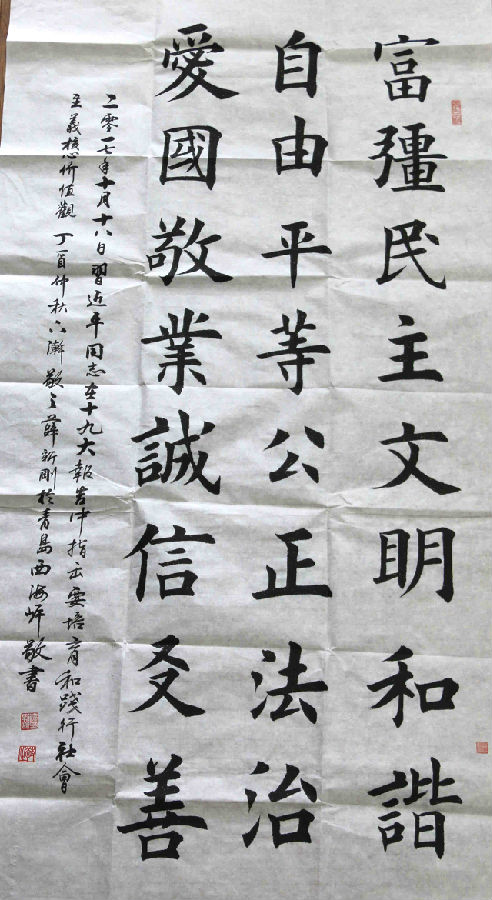 富彊民主文明和諧
自由平等公正法治
愛國敬業誠信友善
二零一七年十月十八日習近平同志在十九大報告中指出要培育和踐行社會
主義核心价值觀 丁酉仲秋 薛新剛於青島西海岸敬書